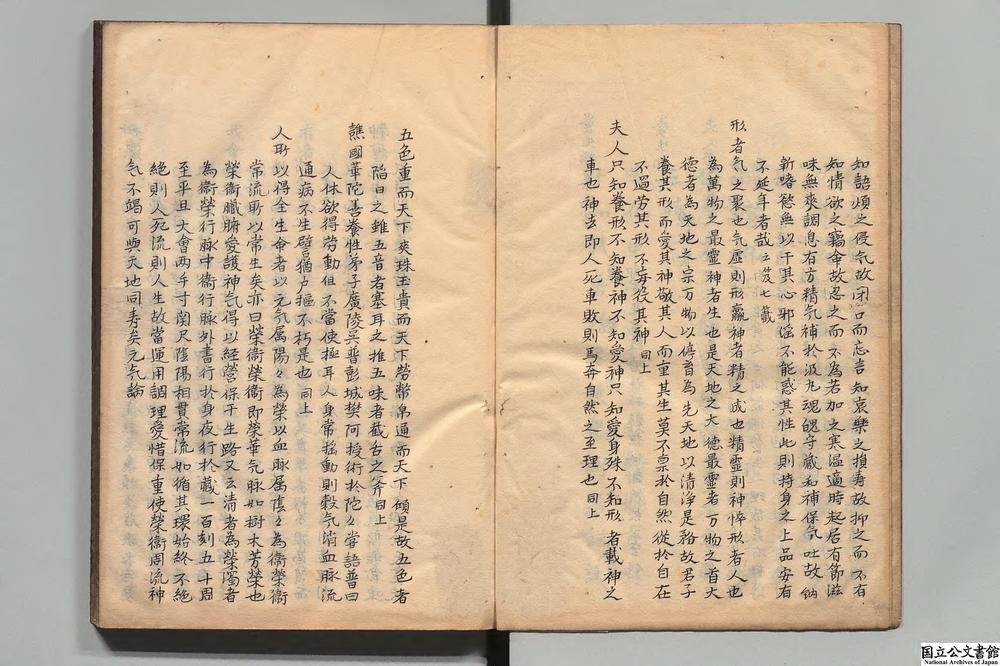 知語煩之侵气故閉口而忘言知哀樂之損壽故抑之而不有
知情欲之竊命故忍之而不為若加之寒溫適時起居有節滋
味無爽調息有方精气補於泥丸魂魄守藏和補保气吐故納
新嗜慾無以干其心邪淫不能惑其性此則持身之上品安有
不延年者哉云笈七籤
形者气之聚也气虛則形羸神者精之成也精虛則神悴形者人也
為萬物之最靈神者生也是天地之大德最靈者万物之首大
德者為天地之宗万物以停育為先天地以清淨是務故君子
養其形而愛其神敬其人而重其生莫不禀於自然從於自在
不過劳其形不妄役其神同上
夫人只知養形不知養神不知愛神只知愛身殊不知形者載神之
車也神去即人死車敗則馬奔自然之至理也同上
五色重而天下爽珠玉貴而天下勞幣帛通而天下傾是故五色者
陷目之錐五音者塞耳之推五味者截舌之斧同上
譙國華陀善養性弟子廣陵吴普彭城樊阿授術於陀々嘗語普曰
人体欲得勞動但不當使極耳人身常摇動則穀气消血脉流
通病不生譬猶户樞不朽是也同上
人所以得全生命者以元气属陽々為榮以血脉属陰々為衞榮衞
常流所以常生矣亦曰榮衞榮衞即榮華气脉如樹木芳榮也
榮衞臟腑愛護神气得以経營保于生路又云清者為榮濁者
為衞榮行脉中衞行脉外晝行於身夜行於藏一百刻五十周
至平旦大會兩手寸関尺陰陽相貫常流如循其環始終不絶
絶則人死流則人生故當運用調理愛惜保重使榮衞周流神
气不竭可與天地同寿矣元气論
国立公文書館
National Archives of Japan